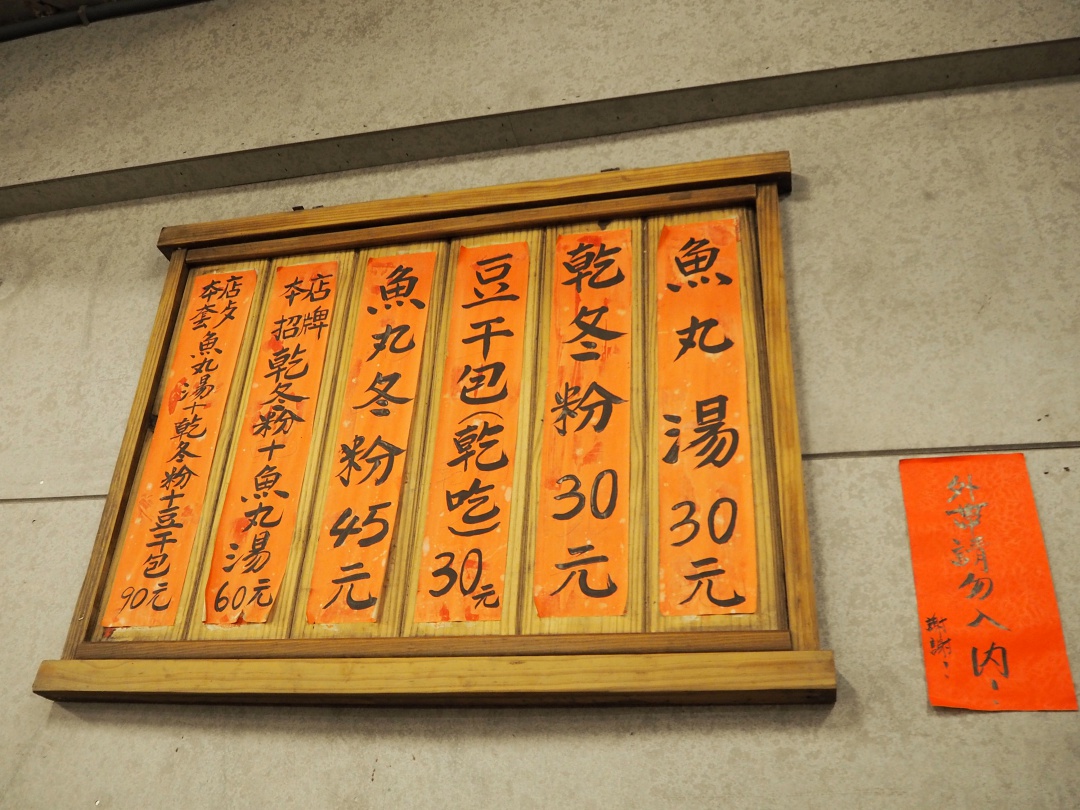 魚丸湯30元
乾冬粉30元
豆干包(乾吃)30元
魚丸冬粉45元
本店招牌乾冬粉+魚丸湯60元
本店套歺魚丸湯+乾冬粉+豆干包90元
外帶請勿入內!
謝謝!